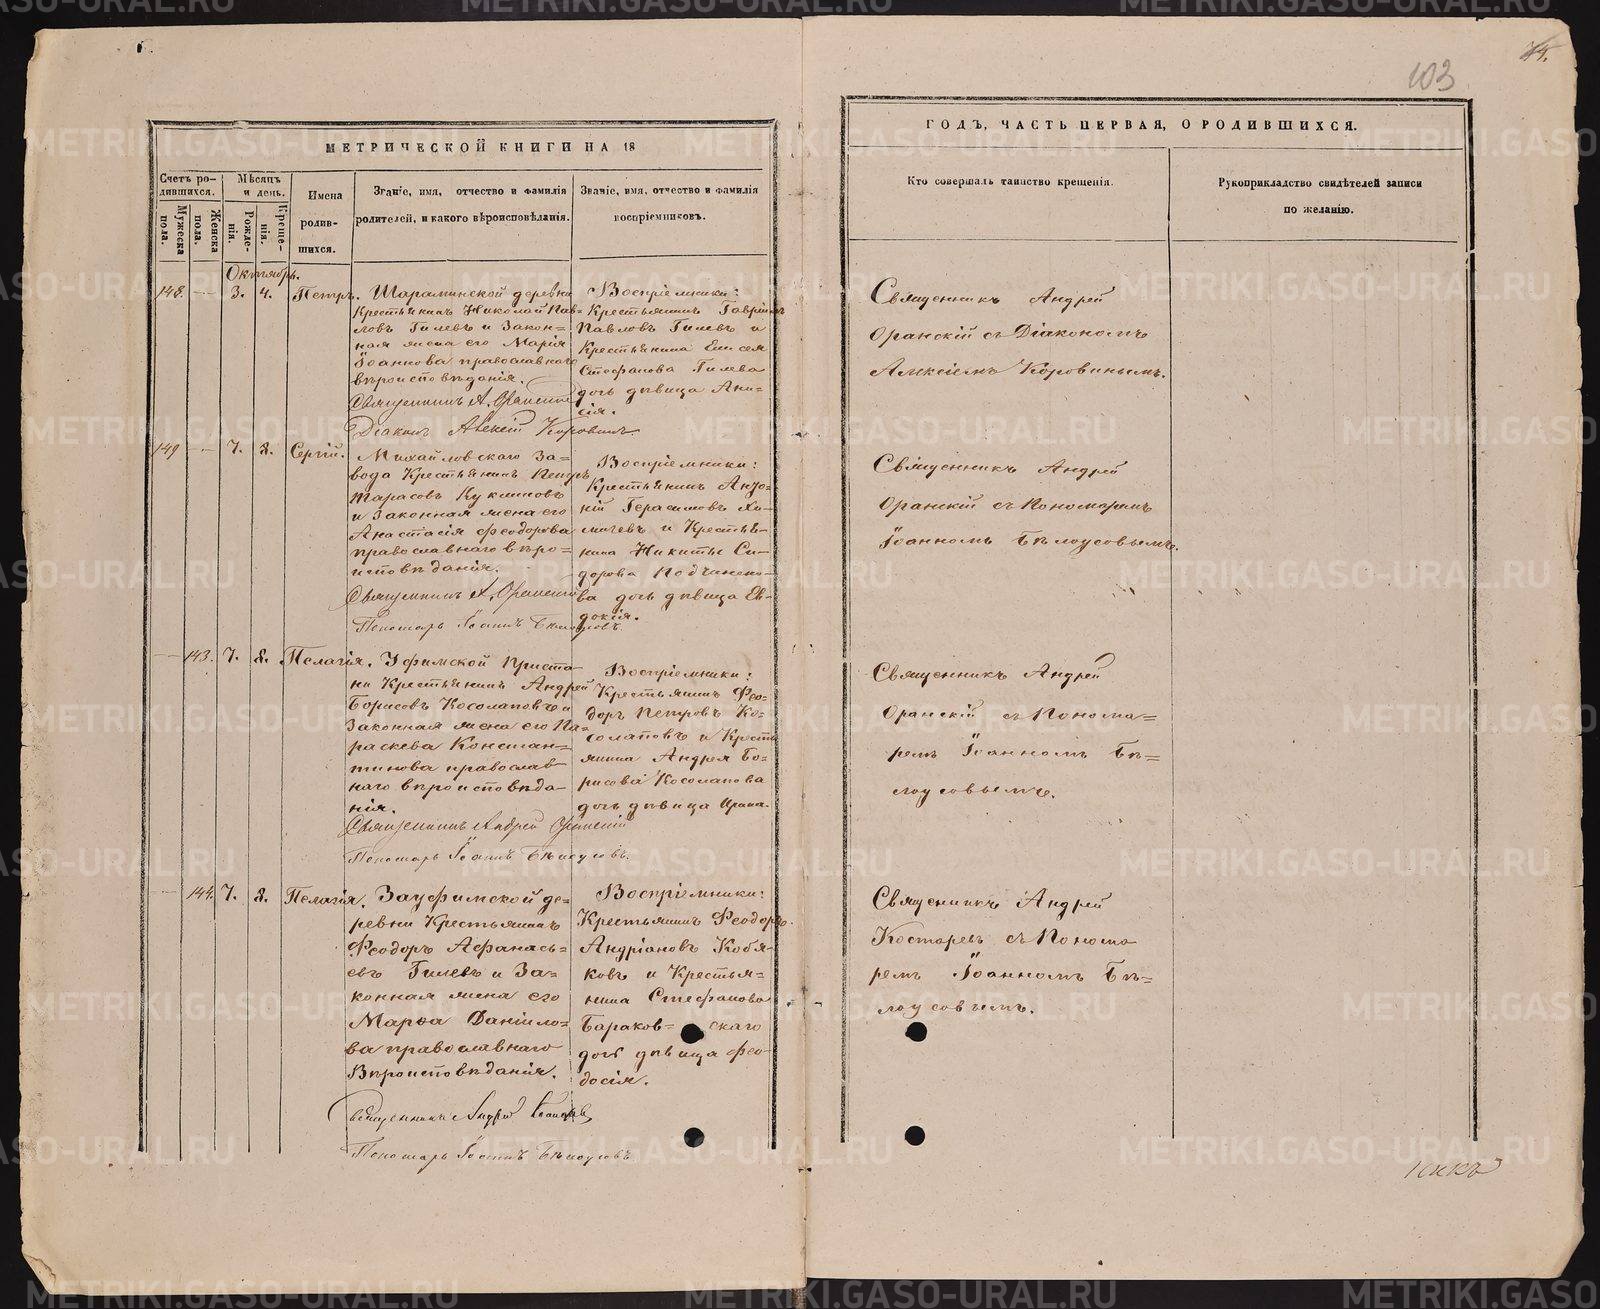 74.
103
МЕТРИЧЕСКОЙ КНИГИ НА 18
ГОДЪ, ЧАСТЬ ПЕРВАЯ, О РОДИВШИХСЯ.
Счетъ ро-
дившихся.
Мужеска
пола.
Женска
пола.
Мѣсяцъ
и день.
Рожде-
нія.
Креще-
нія.
Имена
родив-
шихся.
Званіе, имя, отчество и фамилія
родителей, и какого вѣроисповѣданія.
Званіе, имя, отчество и фамилія
воспріемниковъ.
Кто совершалъ таинство крещенія.
Рукоприкладство свидѣтелей записи
по желанію.
Октябрь.
148. 3. 4. Петръ.
Шараминской деревни
Крестьянинъ Николай Пав=
ловъ Гилевъ и Закон=
ная жена его Марія
Іоаннова православнаго
вѣроисповѣданія.
Священникъ А. Оранскій
Діаконъ Алексій Коровинъ.
Воспріемники:
Крестьянинъ Гавріилъ
Павловъ Гилевъ и
Крестьянина Елисея
Стефанова Гилева
дочь дѣвица Ани-
сія.
Священникъ Андрей
Оранскій съ Діакономъ
Алексіемъ Коровинымъ.
149 7. 8. Сергій.
Михайловскаго За-
вода Крестьянинъ Петръ
Тарасовъ Куклиновъ
и Законная жена его
Анастасія Феодорова
православнаго вѣро=
исповѣданія.
Священникъ А. Оранскій
Пономарь Іоаннъ Бѣлоусовъ.
Воспріемники:
Крестьянинъ Анто-
ній Герасимовъ
и Крестья-
нина Никиты Си-
дорова
дочь дѣвица Ев-
докія.
Священникъ Андрей
Оранскій съ Пономаремъ
Іоанномъ Бѣлоусовымъ.
143. 7. 8. Пелагія.
Уфимской Приста-
ни Крестьянинъ Андрей
Борисовъ Косолаповъ и
Законная жена его Па-
раскева Констан=
тинова православ
наго вѣроисповѣда-
нія.
Священникъ Андрей Оранскій
Пономарь Іоаннъ Бѣлоусовъ.
Воспріемники:
Крестьянинъ Фео-
доръ Петровъ Ко-
солаповъ и Кресть
янина Андрея Бо-
рисова Косолапова
дочь дѣвица Ирина.
Священникъ Андрей
Оранскій съ Понома=
ремъ Іоанномъ Бѣ=
лоусовымъ.
144. 7. 8. Пелагія.
Зауфимской де=
ревни Крестьянинъ
Феодоръ Афанась=
евъ Гилевъ и За=
конная жена его
Марѳа Даніило=
ва православнаго
Вѣроисповѣданія.
Священникъ Андрей Костаревъ
Пономарь Іоаннъ Бѣлоусовъ
Воспріемники:
Крестьянинъ Феодоръ
Андріановъ Кобя-
ковъ и Крестья-
нина Стефанова
Бараков= скаго
дочь дѣвица Фео-
досія.
Священникъ Андрей
Костаревъ съ Понома
ремъ Іоанномъ Бѣ=
лоусовымъ.
METRIKI.GASO-URAL.RU